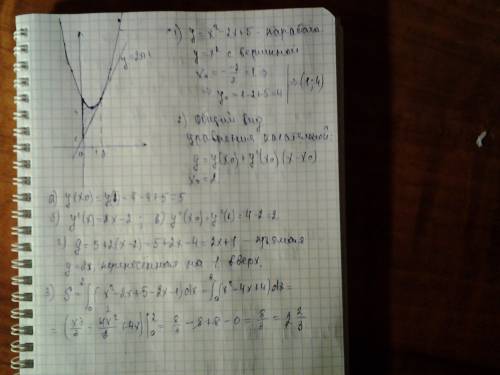 1) y = x² - 2x + 5 - парабола
y = x² с вершиной
x₀ = -(-2)/2 = 1 ⇒
⇒ y₀ = 1 - 2 + 5 = 4 ⇒ (1; 4)
y = 2x+1
2) Общий вид
уравнения касательной:
y = y(x₀) + y'(x₀)(x - x₀)
x₀ = 2
а) y(x₀) = y(2) = 4 - 4 + 5 = 5
б) y'(x) = 2x - 2 ; в) y'(x₀) = y'(2) = 4 - 2 = 2
г) y = 5 + 2(x - 2) = 5 + 2x - 4 = 2x + 1 - прямая
y = 2x, перенесенная на 1 вверх.
3) S = ∫₀² (x² - 2x + 5 - 2x - 1) dx = ∫₀² (x² - 4x + 4) dx =
= (x³/3 - 4x²/2 + 4x) |₀² = 8/3 - 8 + 8 - 0 = 8/3 = 2 2/3